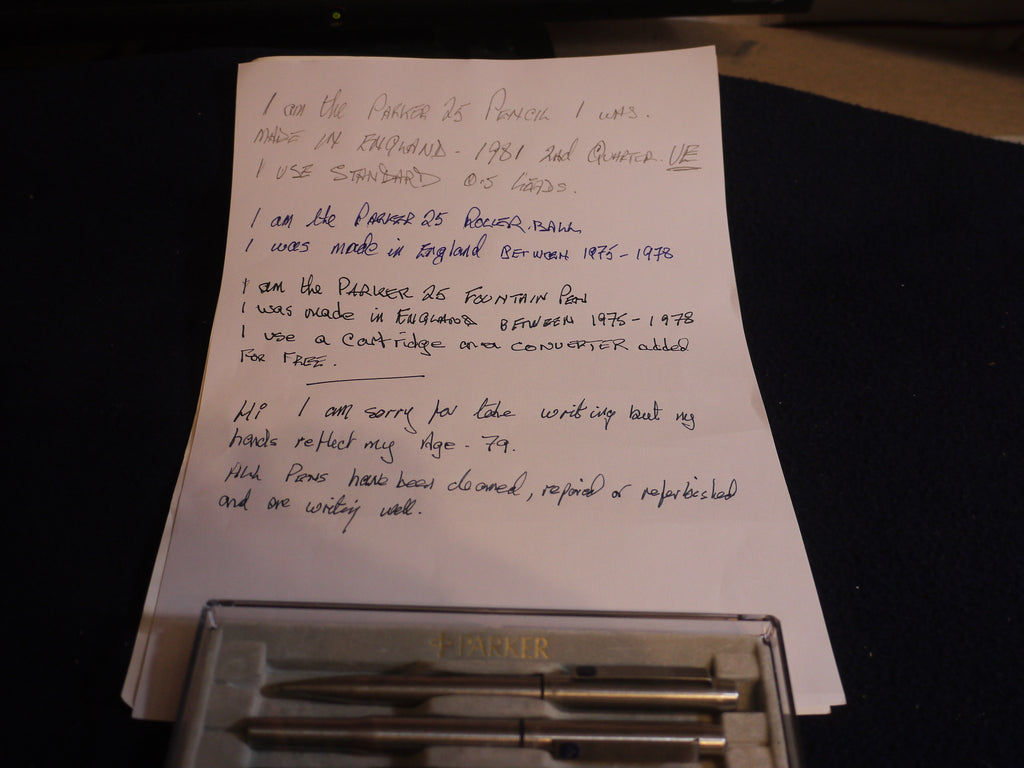 I am the PARKER 25 PENCIL I WAS.
MADE IN ENGLAND - 1981 2nd QUARTER. UE
I USE STANDARD 0.5 LEADS.
I am the PARKER 25 ROLLER.BALL
I was made in England BETWEEN 1975-1978
I am the PARKER 25 FOUNTAIN PEN
I was made in ENGLAND BETWEEN 1975-1978
I use a Cartridge a CONVERTER added
FOR FREE.
Hi I am sorry for the writing but my
hands reflect my Age - 79.
ALL PENS have been cleaned, repaired or referbished
and are writing well.
PARKER